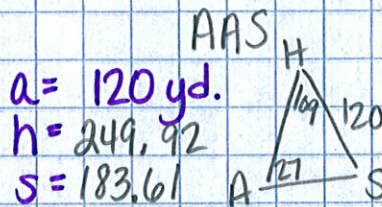 AAS
a = 120 yd.
h = 249.92
s = 183.61
H
109
120
27
A
S